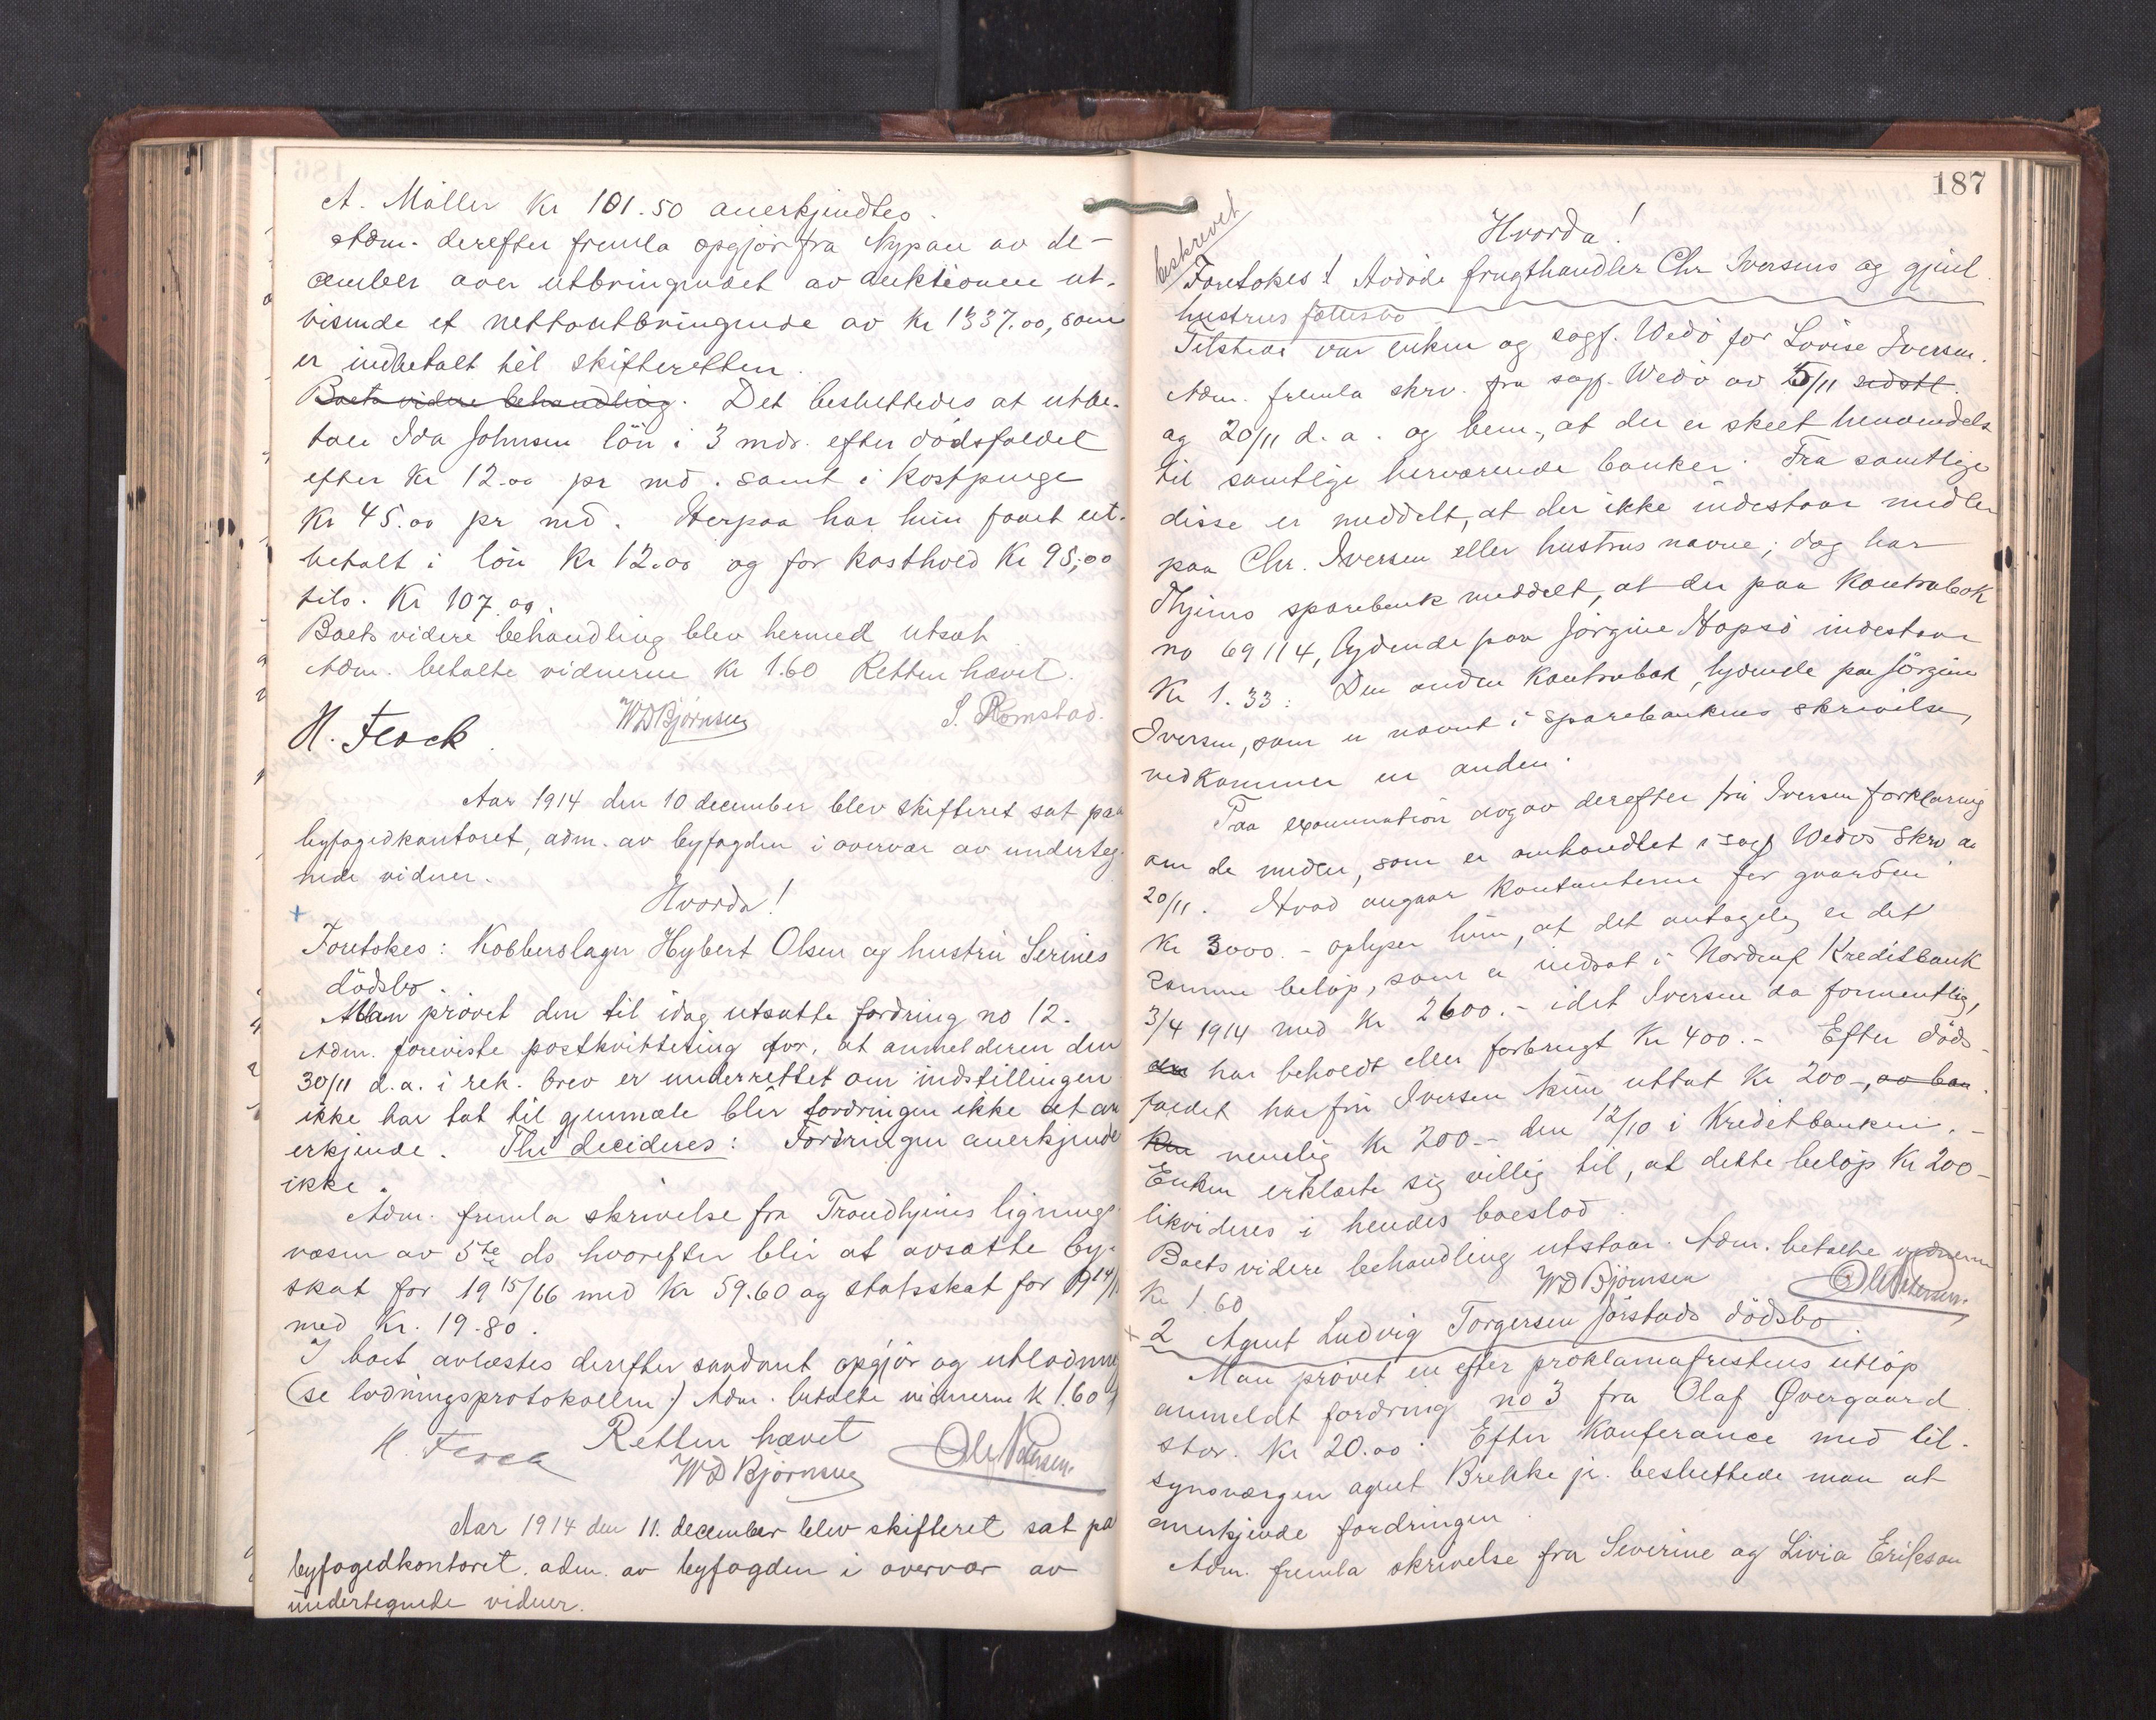 A. Möller Kr 101.50 anerkjendtes.
Adm. derefter fremla opgjör fra Nypan av de-
cember over utbringendet av auktionen ut-
visende et nettoutbringende av Kr 1337.00, som
er indbetalt til skifteretten.
Boets videre behandling. Det besluttedes at utbe-
tale Ida Johnsen lön i 3 mdr. efter dödsfaldet
efter Kr 12.00 pr md. samt i kostpenge
Kr 45.00 pr md. Herpaa har hun faaet ut-
betalt i lön Kr 12.00 og for kosthold Kr 95,00
tils. Kr 107.00.
Boets videre behandling blev hermed utsat
Adm. betalte vidnerne Kr 1.60 Retten hævet.
H. Flock. WDBjörnsen S. Romstad.
Aar 1914 den 10 december blev skifteret sat paa
byfogedkontoret, adm. av byfogden i overvær av underteg-
nede vidner.
Hvorda!
Foretokes: Kobberslager Hybert Olsen og hustru Serines
dödsbo.
Man prövet den til idag utsatte fordring no 12.
Adm. foreviste postkvittering for, at anmelderen den
30/11 d.a. i rek. brev er underrettet om indstillingen
ikke har tat til gjenmæle blir fordringen ikke at an
erkjende. Thi decideres: Fordringen anerkjendes
ikke.
Adm. fremla skrivelse fra Trondhjems lignings-
væsen av 5te ds hvorefter blir at avsætte by-
skat for 1915/16 med Kr 59.60 og statsskat for 1914/15
med Kr. 19.80.
I boet avlæstes derefter saadant opgjör og utlodning
(se lodningsprotokollen :) Adm. betalte vidnerne K 1.60
Retten hævet
H. Flock WDBjörnsen Ole Petersen.
Aar 1914 den 11. december blev skifteret sat paa
byfogedkontoret. adm. av byfogden i overvær av
undertegnede vidner.
187
Hvorda!
beskrevet
Foretokes 1 Avdöde frugthandler Chr Iversens og gjenl.
hustrus fællesbo
Tilstede var enken og sagf. Wedö for Lovise Iversen.
Adm. fremla skrv. fra sagf. Wedö av 5/11 sidstl.
og 20/11 d.a. og bem., at der er skeet henvendelse
til samtlige herværende banker. Fra samtlige
disse er meddelt, at der ikke indestaar midler
paa Chr. Iversen eller hustrus navne; dog har
Thjems sparebank meddelt, at der paa kontrabok
no 69114, lydende paa Jörgine Hopsö indestaar
Kr 1.33: Den anden kontrabok, lydende paa Jörgine
Iversen, som er nævnt i sparebankens skrivelse,
vedkommer en anden.
Paa examination avgav derefter fru Iversen forklaring
om de midler, som er omhandlet i sagf Wedös skrv av
20/11. Hvad angaar kontanterne for gaarden
Kr 3000.- oplyser hun, at det antagelig er det
samme belöp, som er indsat i Nordenf Kreditbank
3/4 1914 med Kr 2600.- idet Iversen da formentlig,
den har beholdt eller forbrugt Kr 400.- Efter döds-
faldet har fru Iversen kun uttat Kr 200-, av ban
ken nemlig Kr 200.- den 12/10 i Kreditbanken.-
Enken erklærte sig villig til, at dette belöp Kr 200-
likvideres i hendes boeslod
Boets videre behandling utstaar. Adm. betalte vidnerne
Kr 1.60 WDBjörnsen Ole Petersen.
2 Agent Ludvig Torgersen Jörstads dödsbo.
Man prövet en efter proklamafristens utlöp
anmeldt fordring no 3 fra Olaf Øvergaard
stor. Kr 20.00. Efter konferance med til-
synsværgen agent Brekke jr. besluttede man at
anerkjende fordringen.
Adm. fremla skrivelse fra Severine og Livia Erikson